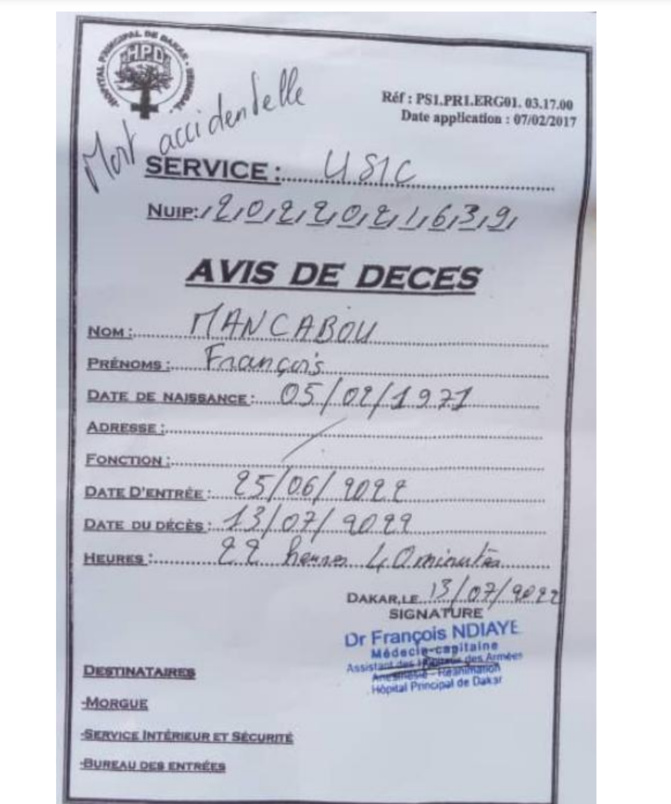 HOPITAL PRINCIPAL DE DAKAR - SENEGAL
HPD
Mort accidentelle
Réf : PS1.PR1.ERG01. 03.17.00
Date application : 07/02/2017
SERVICE : USIC
NUIP: 2022021639
AVIS DE DECES
NOM : MANCABOU
PRÉNOMS : François
DATE DE NAISSANCE : 05/02/1971
ADRESSE :
FONCTION :
DATE D'ENTRÉE : 25/06/2022
DATE DU DÉCÈS : 13/07/2022
HEURES : 22 heures 40 minutes
DAKAR, LE 13/07/2022
SIGNATURE
Dr François NDIAYE
Médecin-capitaine
Assistant des Hôpitaux des Armées
Anesthésie - Réanimation
Hôpital Principal de Dakar
DESTINATAIRES
-MORGUE
-SERVICE INTÉRIEUR ET SÉCURITÉ
-BUREAU DES ENTRÉES